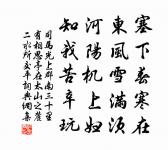 塞下春寒在
東風雪滿須
河陽機上婦
知我苦辛玩
司馬光上郡南三十里
有相思亭在太山之麓
二水所交平詞典網集